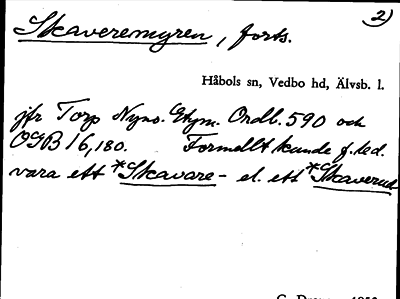 2)
Skaveremyren, forts.
Håbols sn, Vedbo hd, Älvsb. l.
jfr Torp Nyno. Etym. Ordb. 590 och
OGB 16,180. Formellt kunde f. led.
vara ett *Skavare- el. ett *Skaverud